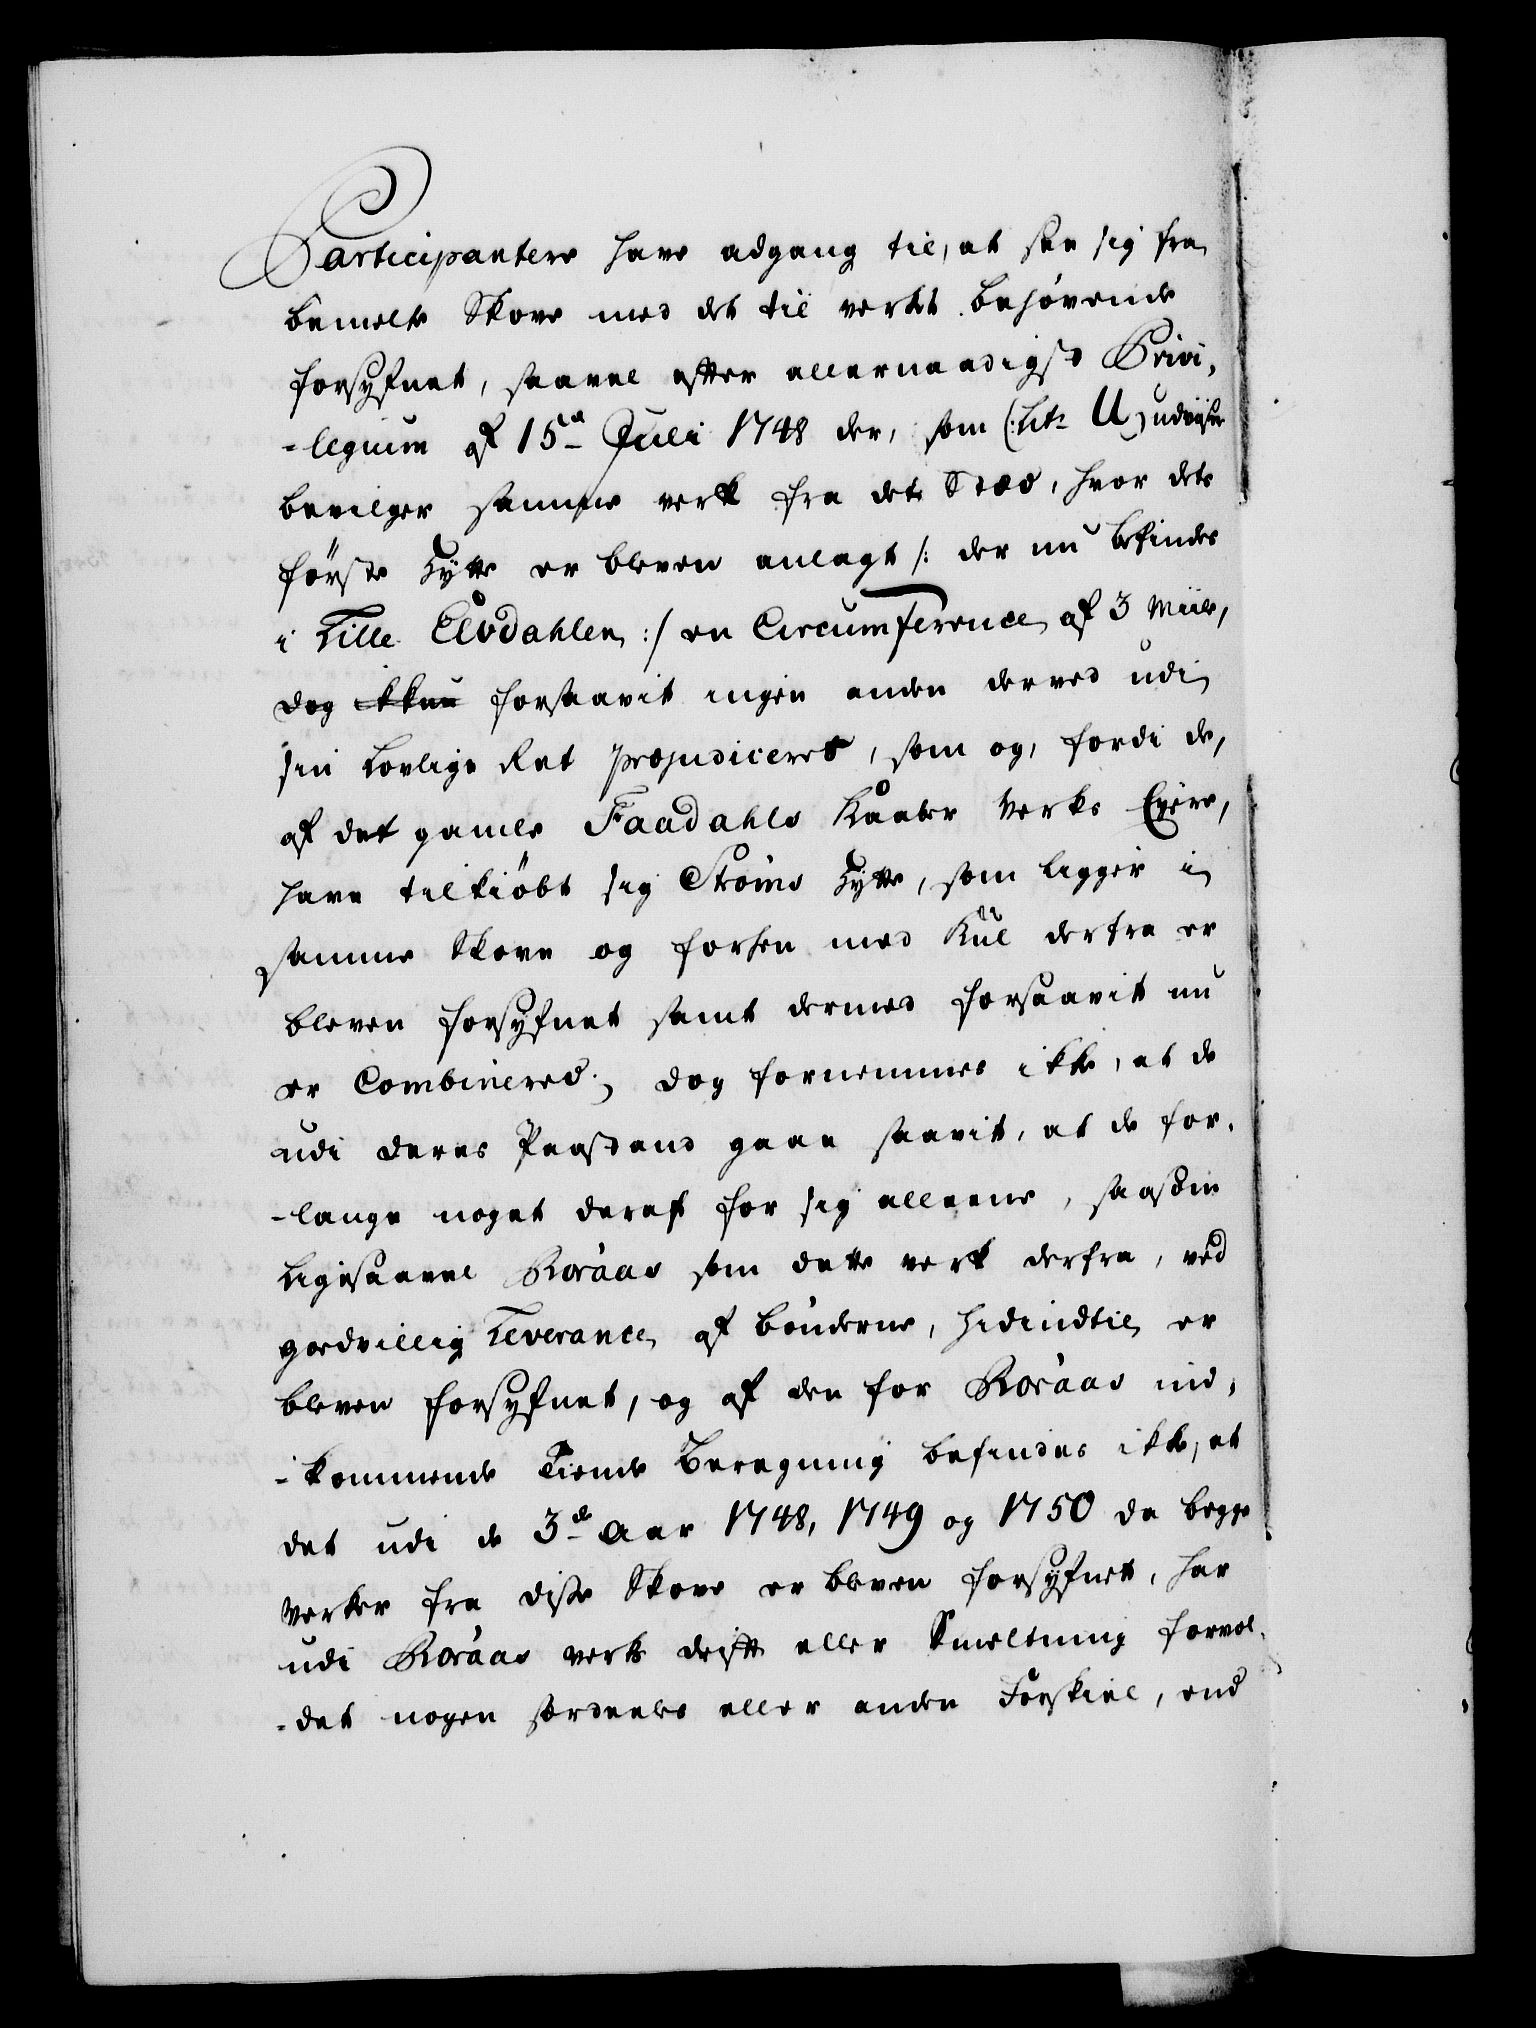 Participantere have adgang til, at see sig fra
bemelte Skove med det til verket behøvende
forsyfnet, saavel efter allernaadigst Privi-
-legium af 15de Juli 1748 der, som (: Litr U :) udviser
bevilger samme verk fra det Stæd, hvor dets
første Hytte er bleven anlagt /: der nu befindes
i Lille Elvdahlen :/ en Circumference af 3 Miile,
dog ikkun forsaavit ingen anden derved udi
sin Lovlige Ret præjudiceres, som og, fordi de,
af det gamle Faadahls Kaaber Verks Eyere,
have tilkiøbt sig Strøms Hytte, som ligger i
samme Skove og forhen med Kul derfra er
bleven forsyfnet samt dermed forsaavit nu
er Combinered; dog fornemmes ikke, at de
udi deres Paastand gaae saavit, at de for-
-lange noget deraf for sig alleene, saasom
ligesaavel Roraas som dette verk derfra, ved
goedvillig Leverance af bønderne, hidindtil er
bleven forsyfnet, og af den for Roraas ind-
-kommende Tiende Beregning befindes ikke, at
det udi de 3de Aar 1748, 1749 og 1750 da begge
Verker fra disse Skove er bleven forsyfnet, har
udi Roraas verks drift eller Smeltning forvol-
-det nogen særdeeles eller anden Forskiel, end